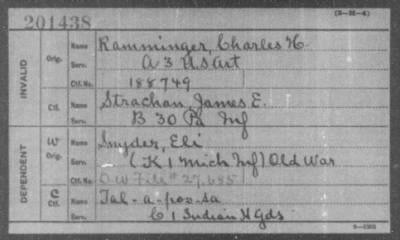 201438
(3-38-4)
INVALID
Orig.
Name Ramminger, Charles H.
Serv. A 3 U S Art
Ctf. No. 188749
Ctf.
Name Strachan, James E.
Serv. B 30 Pa Inf
DEPENDENT
W
Orig.
Name Snyder, Eli
Serv. (K 1 Mich Inf) Old War
Ctf. No. O W File # 27,685
C
Ctf.
Name Tal-a-pox-sa
Serv. C 1 Indian H Gds